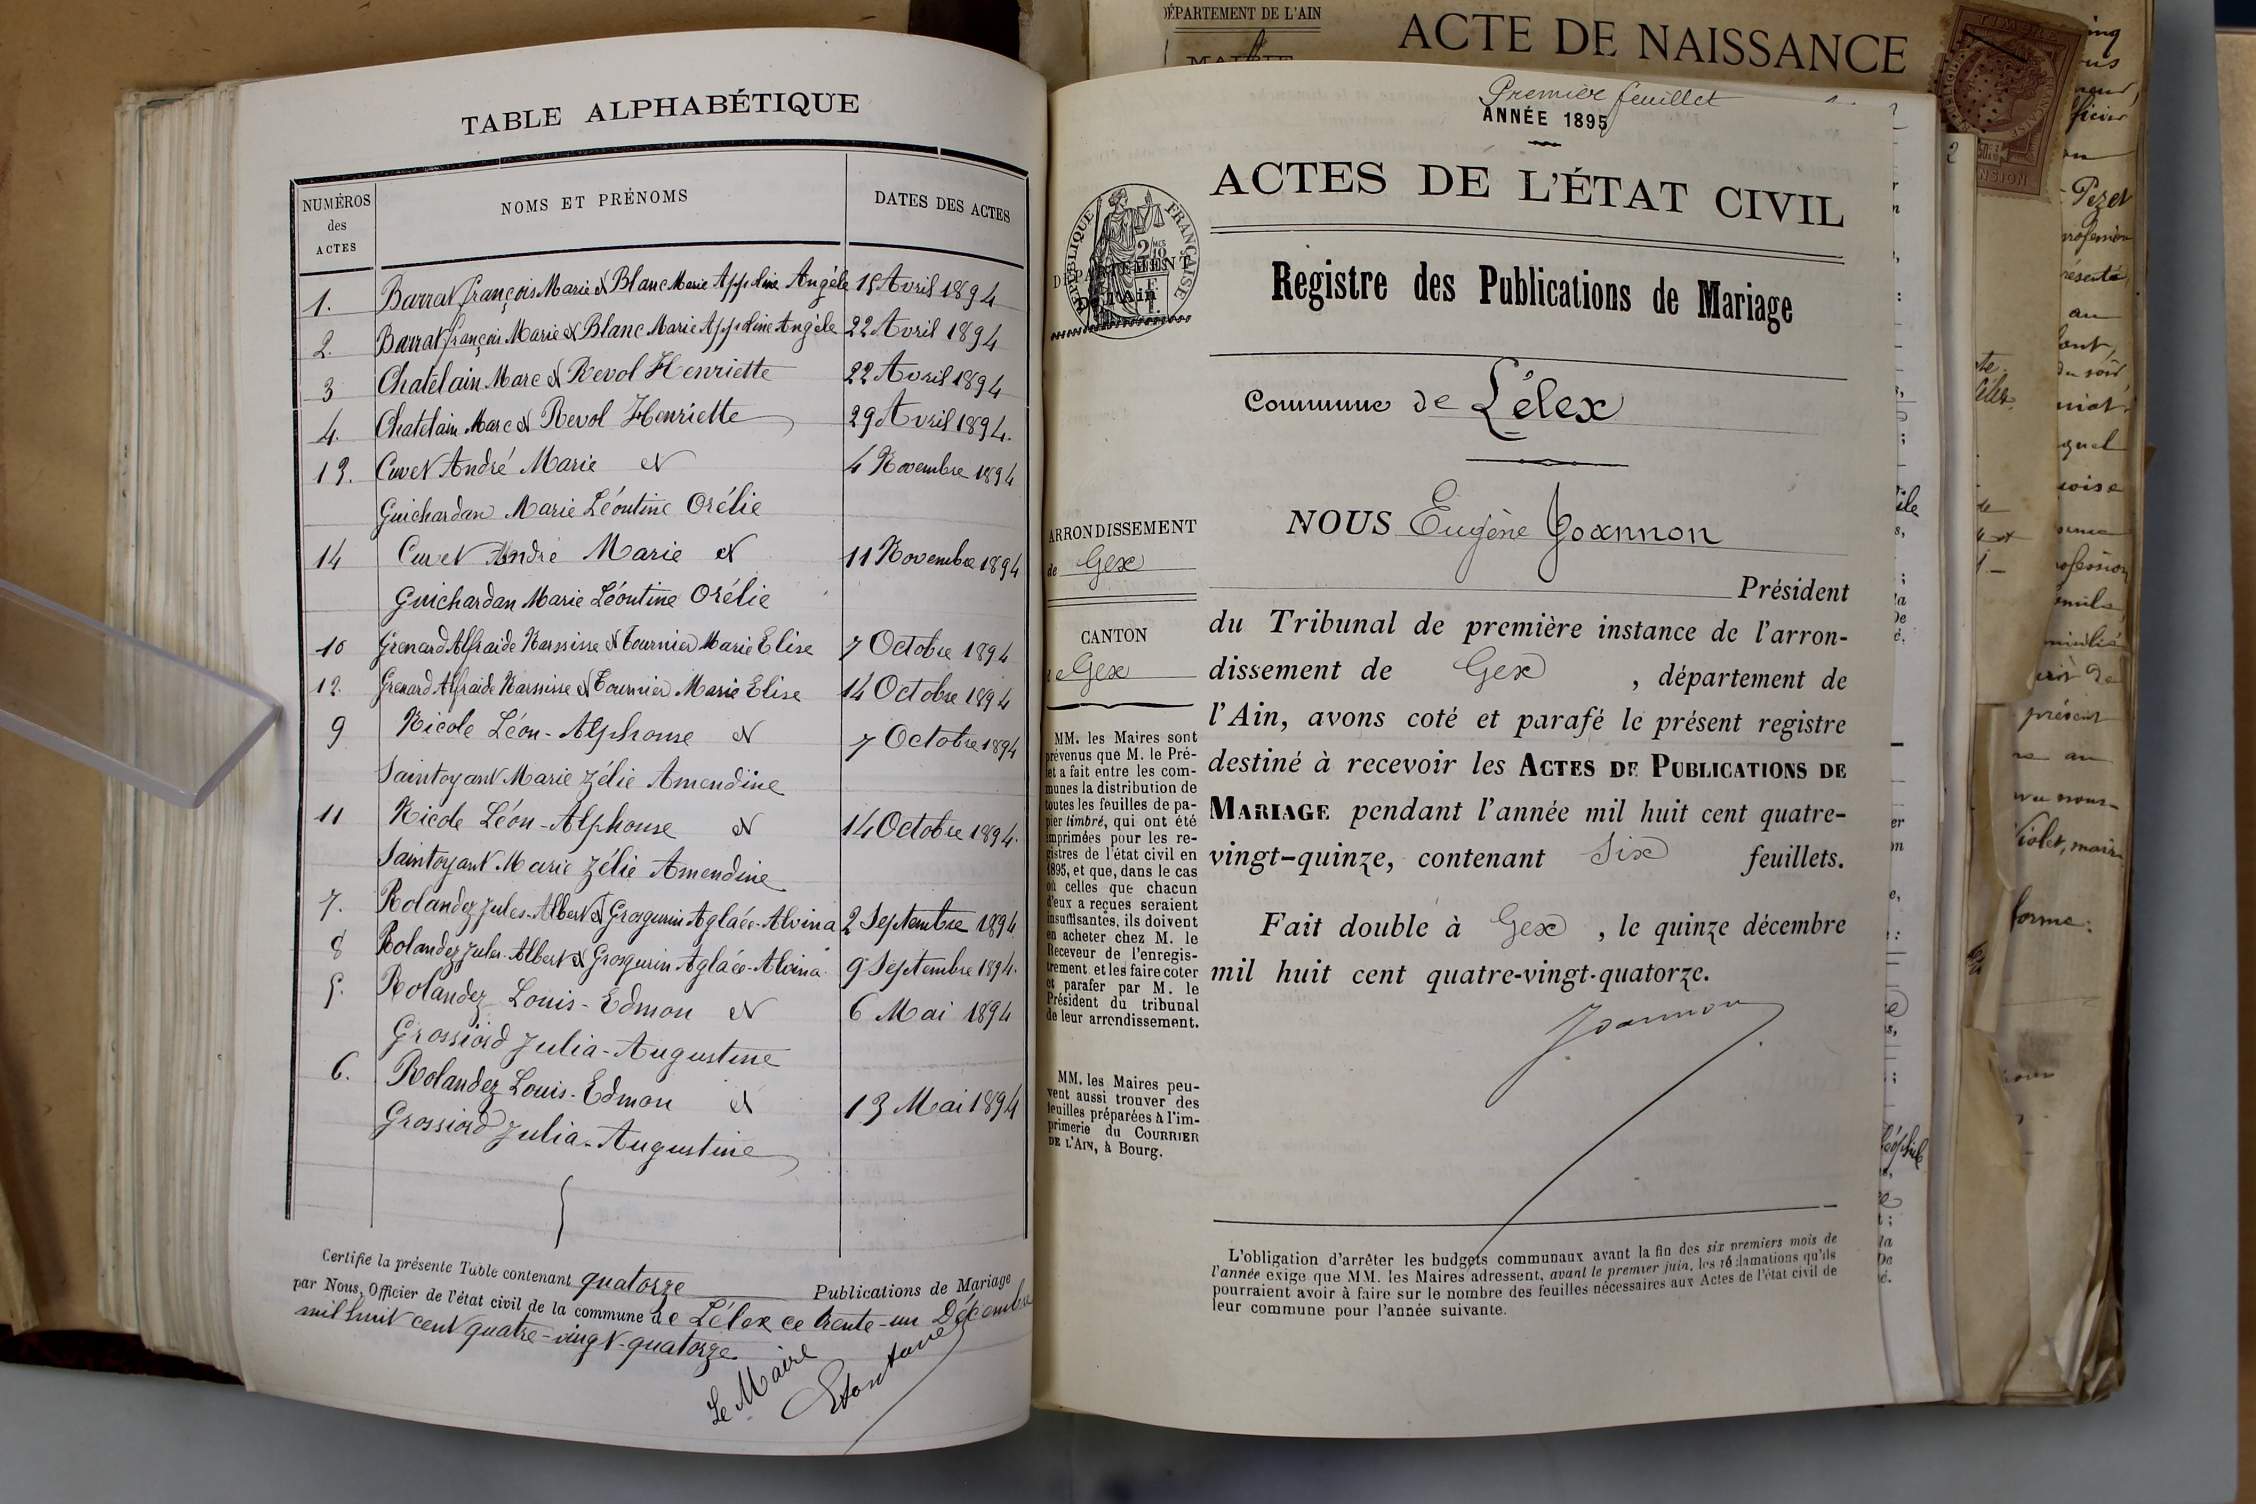 TABLE ALPHABÉTIQUE
NUMÉROS des ACTES
NOMS ET PRÉNOMS
DATES DES ACTES
1. Barrat François Marie et Blanc Marie Appoline Angèle 15 Avril 1894
2. Barrat François Marie et Blanc Marie Appoline Angèle 22 Avril 1894
3 Chatelain Marc et Revol Henriette 22 Avril 1894
4. Chatelain Marc et Revol Henriette 29 Avril 1894.
13. Cuvet André Marie et 4 Novembre 1894
Guichardan Marie Léontine Orélie
14 Cuvet André Marie et 11 Novembre 1894
Guichardan Marie Léontine Orélie
10 Grenard Alfraide Narssisse et Tournier Marie Elise 7 Octobre 1894
12. Grenard Alfraide Narssisse et Tournier Marie Elise 14 Octobre 1894
9 Nicole Léon-Alphonse et 7 Octobre 1894
Saintoyant Marie Zélie Amendine
11 Nicole Léon-Alphonse et 14 Octobre 1894.
Saintoyant Marie Zélie Amendine
7. Rolandez Jules-Albert et Grosgurin Aglaée-Alvina 2 Septembre 1894.
8 Rolandez Jules-Albert et Grosgurin Aglaée-Alvina 9 Septembre 1894.
5. Rolandez Louis-Edmon et 6 Mai 1894
Grossiord Julia-Augustine
6. Rolandez Louis-Edmon et 13 Mai 1894
Grossiord Julia-Augustine
Certifié la présente Table contenant quatorze Publications de Mariage
par Nous, Officier de l'état civil de la commune de Lélex ce trente-un Décembre
mil huit cent quatre-vingt-quatorze.
Le Maire
DÉPARTEMENT DE L'AIN
MAIRIE
ACTE DE NAISSANCE
Premier feuillet
ANNÉE 1895
ACTES DE L'ÉTAT CIVIL
RÉPUBLIQUE FRANÇAISE
DÉPARTEMENT
De l'Ain
Registre des Publications de Mariage
Commune de Lélex
NOUS Eugène Joannon
Président
du Tribunal de première instance de l'arron-
dissement de Gex, département de
l'Ain, avons coté et parafé le présent registre
destiné à recevoir les ACTES DE PUBLICATIONS DE
MARIAGE pendant l'année mil huit cent quatre-
vingt-quinze, contenant six feuillets.
Fait double à Gex, le quinze décembre
mil huit cent quatre-vingt-quatorze.
Joannon
ARRONDISSEMENT
de Gex
CANTON
de Gex
MM. les Maires sont
prévenus que M. le Pré-
fet a fait entre les com-
munes la distribution de
toutes les feuilles de pa-
pier timbré, qui ont été
imprimées pour les re-
gistres de l'état civil en
1895, et que, dans le cas
où celles que chacun
d'eux a reçues seraient
insuffisantes, ils doivent
en acheter chez M. le
Receveur de l'enregis-
trement et les faire coter
et parafer par M. le
Président du tribunal
de leur arrondissement.
MM. les Maires peu-
vent aussi trouver des
feuilles préparées à l'im-
primerie du COURRIER
DE L'AIN, à Bourg.
L'obligation d'arrêter les budgets communaux avant la fin des six premiers mois de
l'année exige que MM. les Maires adressent, avant le premier juin, les réclamations qu'ils
pourraient avoir à faire sur le nombre des feuilles nécessaires aux Actes de l'état civil de
leur commune pour l'année suivante.
2
Pezet
profession
au
présent
Violet, maire
forme: